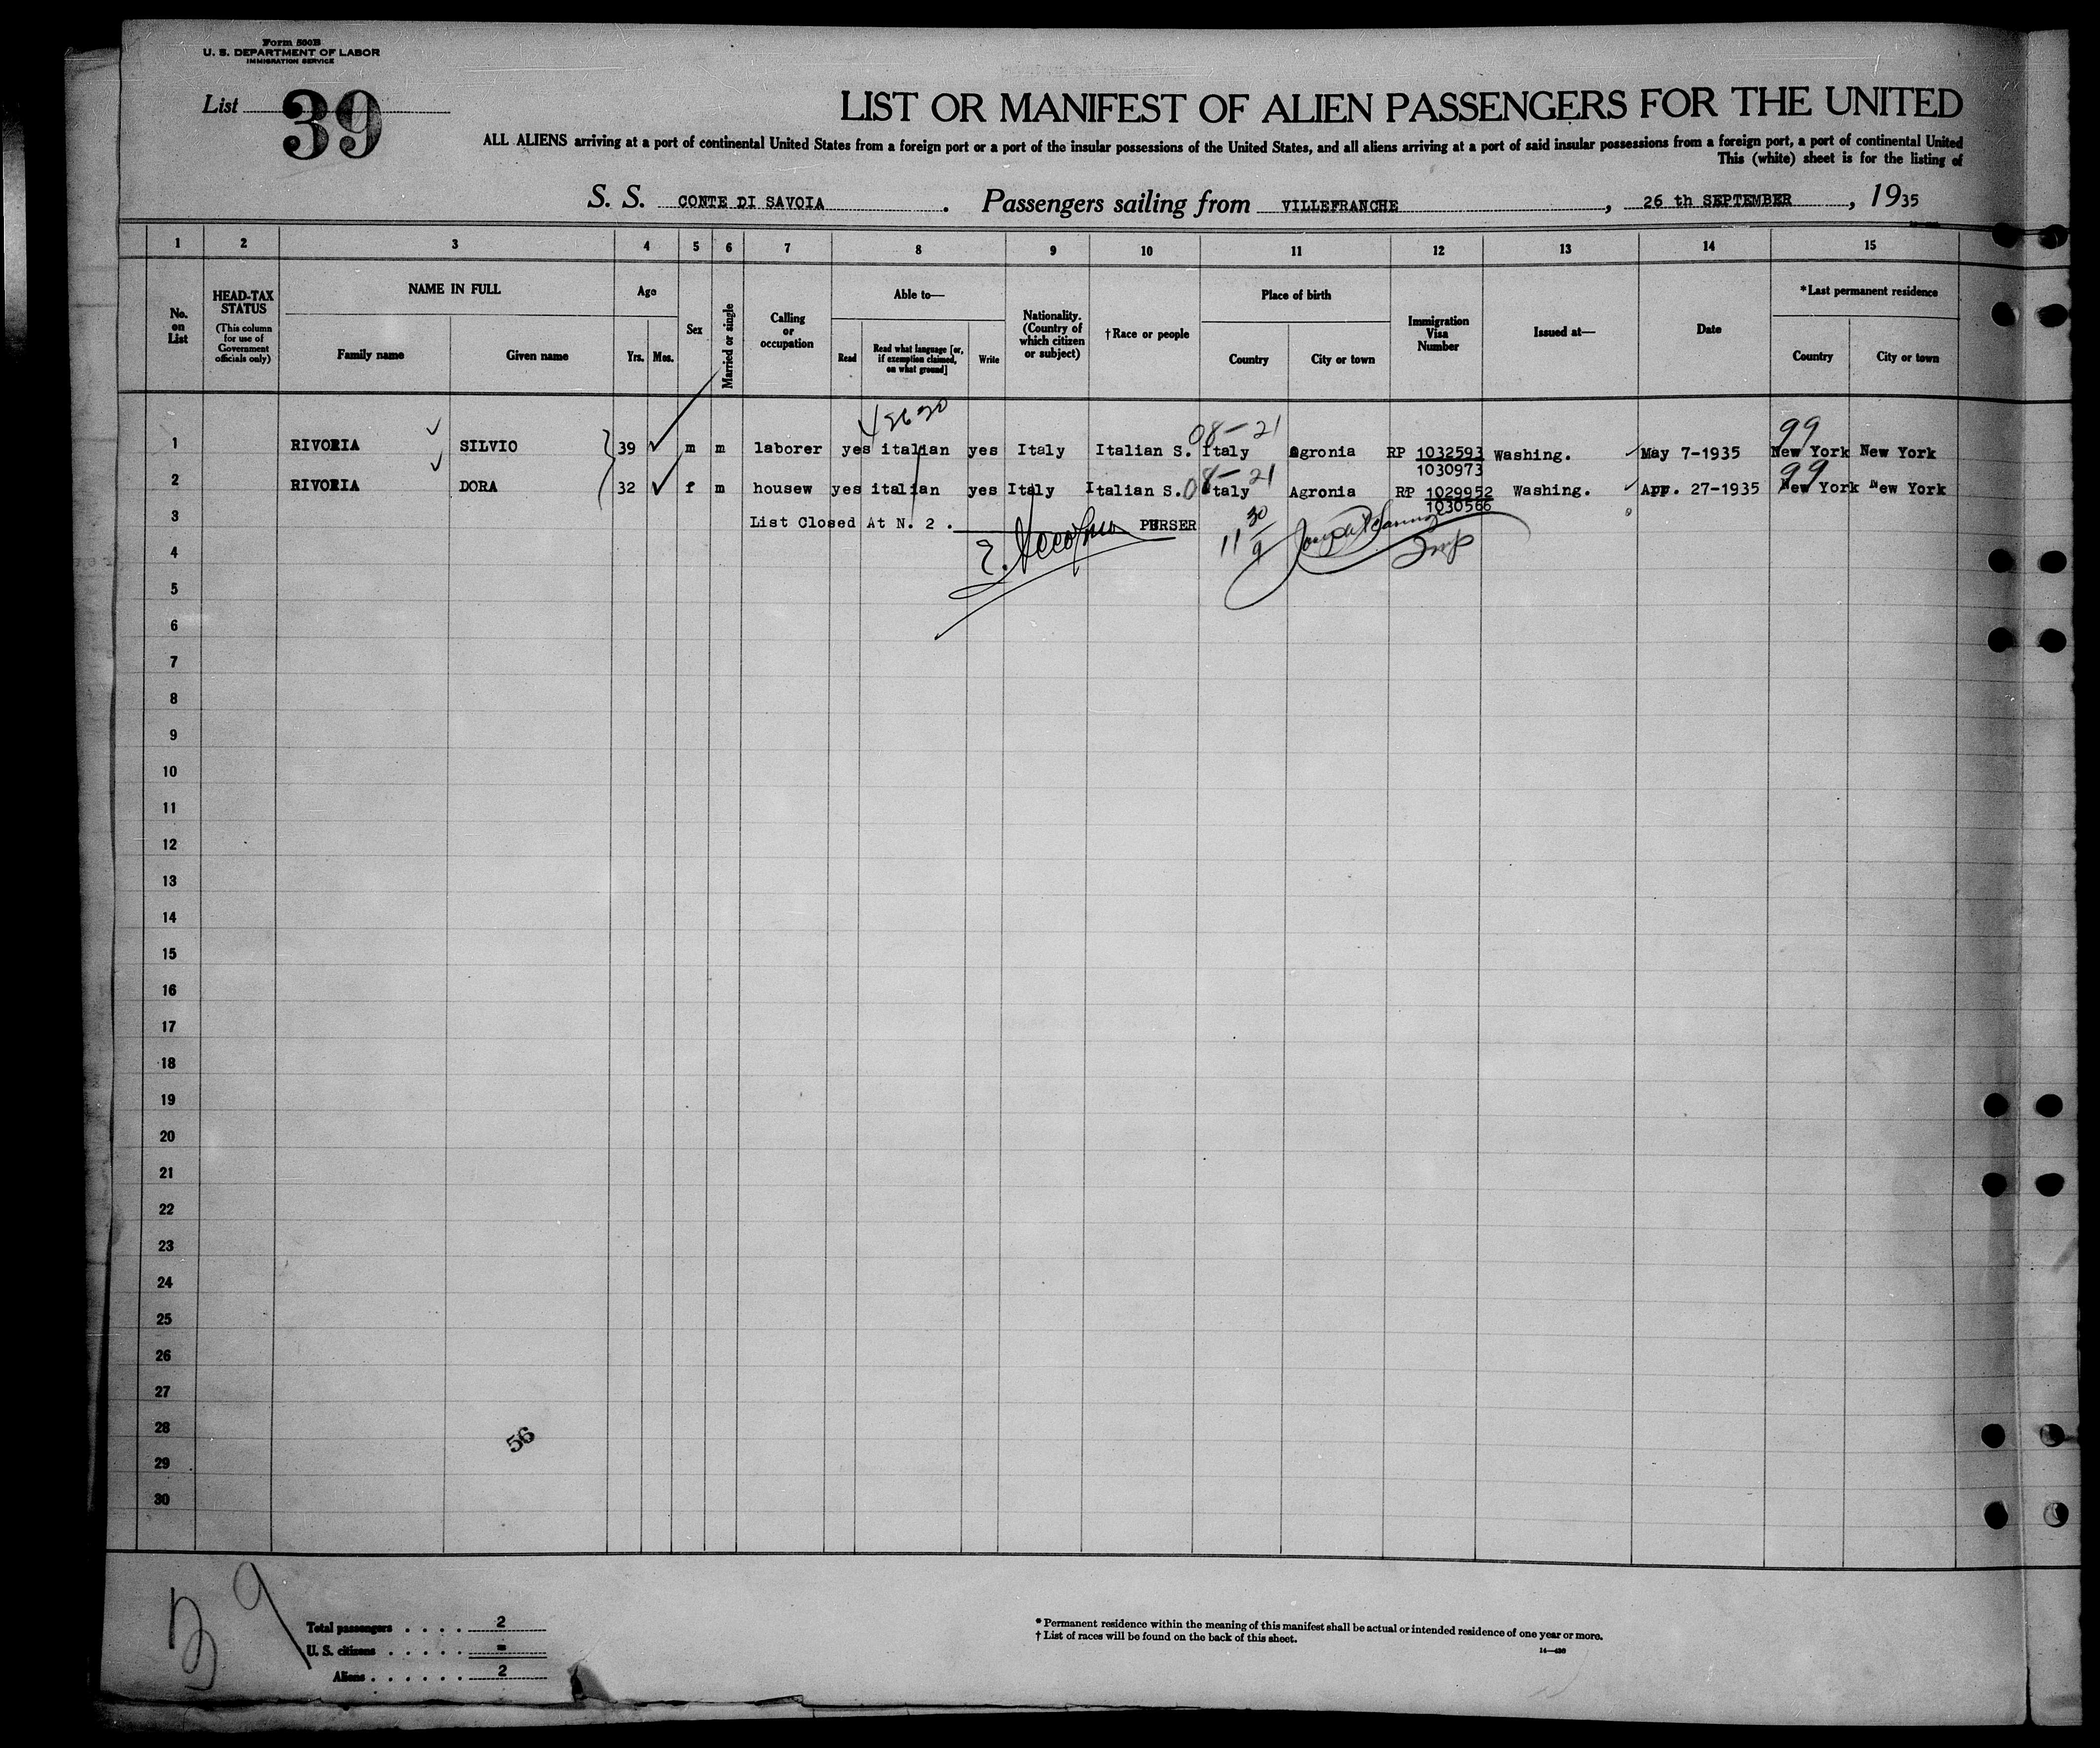 Form 500B
U. S. DEPARTMENT OF LABOR
IMMIGRATION SERVICE
List 39
LIST OR MANIFEST OF ALIEN PASSENGERS FOR THE UNITED
ALL ALIENS arriving at a port of continental United States from a foreign port or a port of the insular possessions of the United States, and all aliens arriving at a port of said insular possessions from a foreign port, a port of continental United
This (white) sheet is for the listing of
S. S. CONTE DI SAVOIA . Passengers sailing from VILLEFRANCHE , 26 th SEPTEMBER , 1935
1 2 3 4 5 6 7 8 9 10 11 12 13 14 15
No. on List
HEAD-TAX STATUS (This column for use of Government officials only)
NAME IN FULL
Family name Given name
Age
Yrs. Mos.
Sex
Married or single
Calling or occupation
Able to—
Read Read what language [or, if exemption claimed, on what ground] Write
Nationality. (Country of which citizen or subject)
†Race or people
Place of birth
Country City or town
Immigration Visa Number
Issued at—
Date
*Last permanent residence
Country City or town
08-21 99
1 RIVORIA SILVIO 39 m m laborer yes italian yes Italy Italian S. Italy Agronia RP 1032593 Washing. May 7-1935 New York New York
1030973
08-21 99
2 RIVORIA DORA 32 f m housew yes italian yes Italy Italian S. Italy Agronia RP 1029952 Washing. Apr. 27-1935 New York New York
1030566
3 List Closed At N. 2 . PURSER
4
5
6
7
8
9
10
11
12
13
14
15
16
17
18
19
20
21
22
23
24
25
26
27
28
29
30
56
39
Total passengers . . . . 2
U. S. citizens . . . . . =
Aliens . . . . . . 2
* Permanent residence within the meaning of this manifest shall be actual or intended residence of one year or more.
† List of races will be found on the back of this sheet.